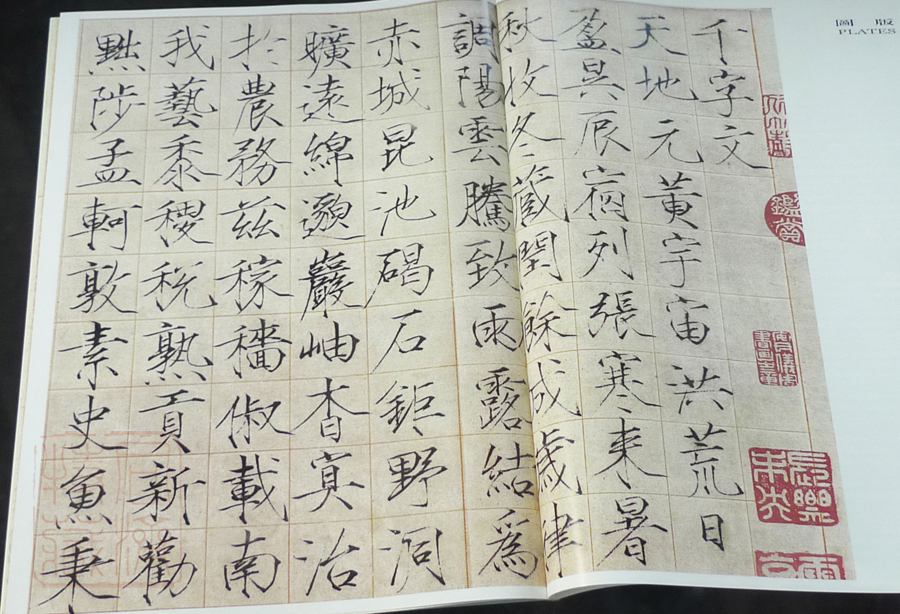 圖版
PLATES
千字文
天地元黃宇宙洪荒日
盈昃辰宿列張寒来暑
秋收冬蔵閏餘成歲律
調陽雲騰致雨露結為
赤城昆池碣石鉅野洞
曠遠綿邈巖岫杳冥治
於農務茲稼穡俶載南
我藝黍稷稅熟貢新勸
黜陟孟軻敦素史魚秉
鑑賞
長樂未央